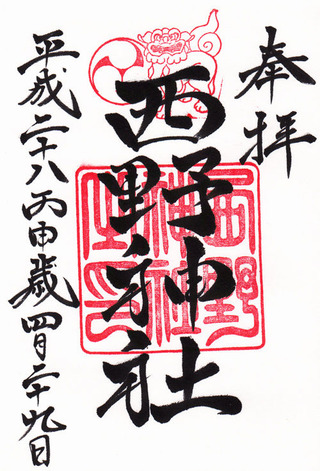 奉拝
西野神社
平成二十八丙申歳四月二十九日
西野
神社
之印